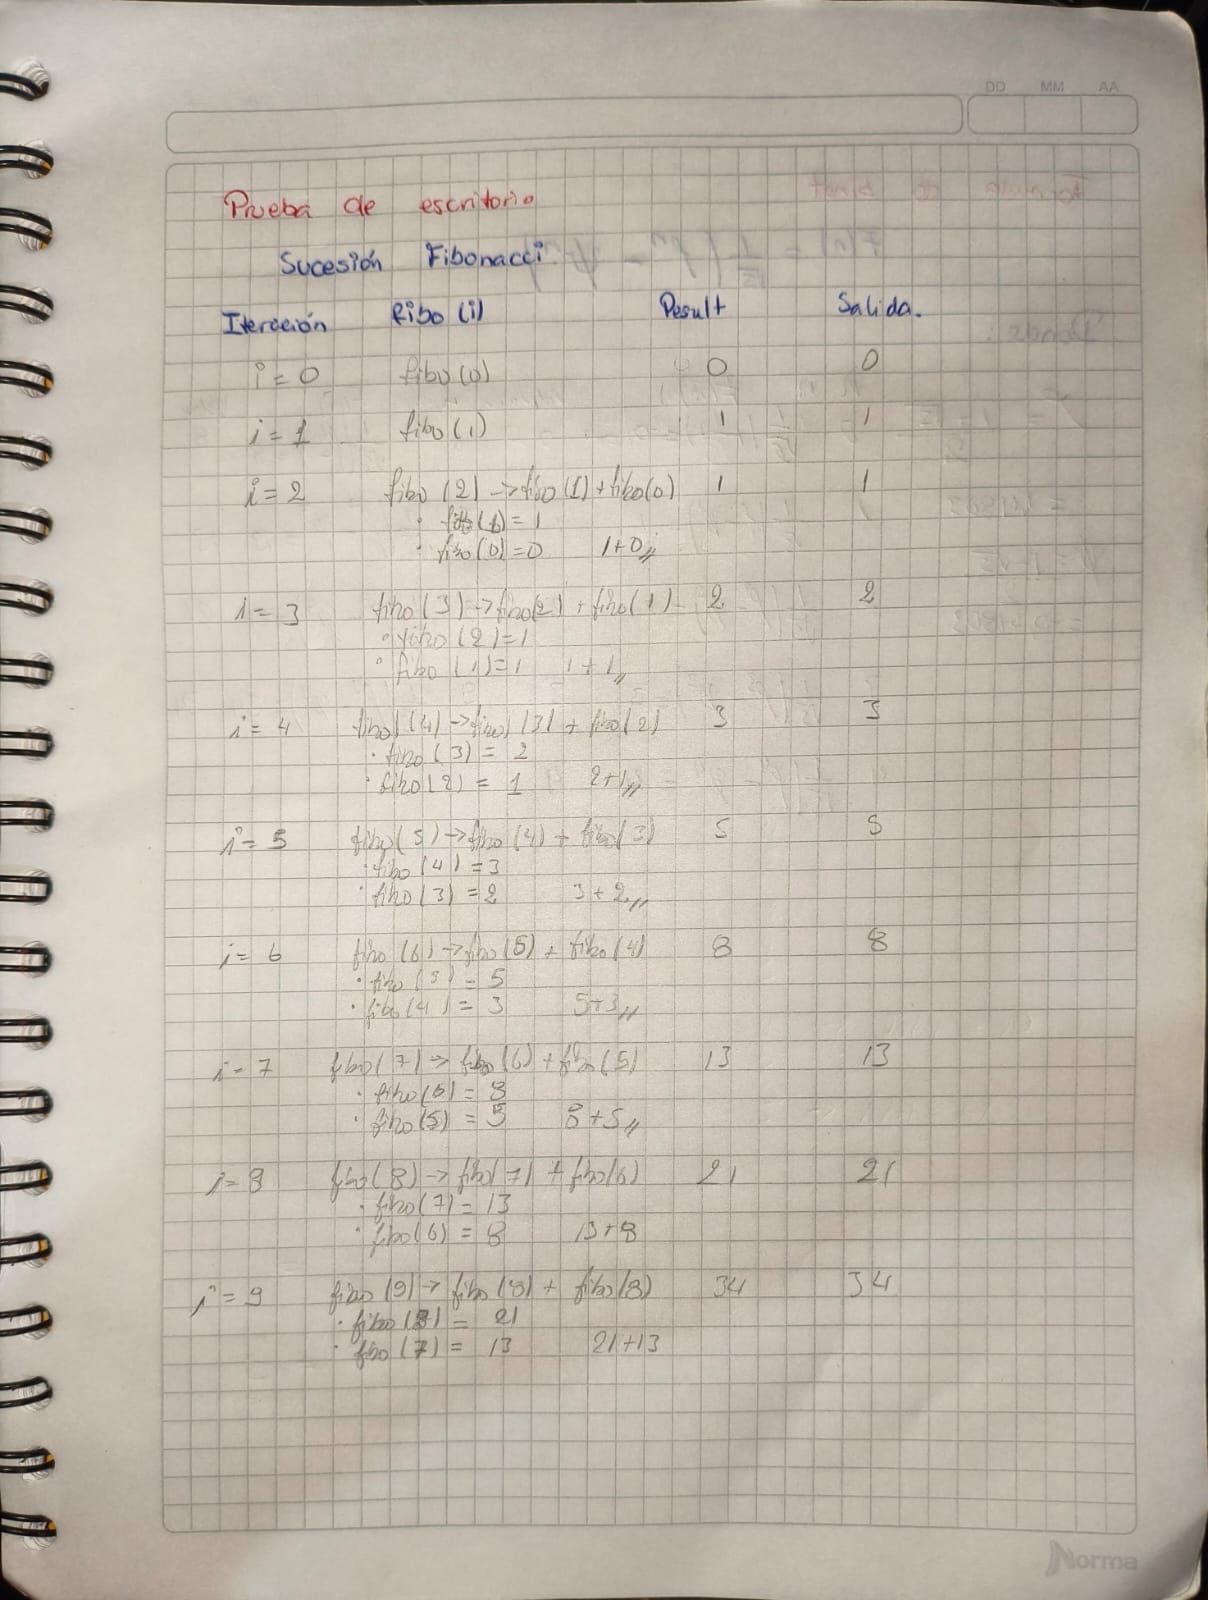 DD MM AA
Prueba de escritorio
Sucesión Fibonacci
Iteración Fibo (i) Result Salida.
i = 0 fibo (0) 0 0
i = 1 fibo (1) 1 1
i = 2 fibo (2) → fibo (1) + fibo(0) 1 1
· fibo (1) = 1
· fibo (0) = 0 1+0,,
i = 3 fibo (3) → fibo(2) + fibo(1) 2 2
· fibo (2) = 1
· fibo (1) = 1 1+1,,
i = 4 fibo (4) → fibo (3) + fibo(2) 3 3
· fibo (3) = 2
· fibo (2) = 1 2+1,,
i = 5 fibo (5) → fibo (4) + fibo(3) 5 5
· fibo (4) = 3
· fibo (3) = 2 3+2,,
i = 6 fibo (6) → fibo(5) + fibo (4) 8 8
· fibo (5) = 5
· fibo (4) = 3 5+3,,
i = 7 fibo (7) → fibo (6) + fibo (5) 13 13
· fibo (6) = 8
· fibo (5) = 5 8+5,,
i = 8 fibo (8) → fibo(7) + fibo(6) 21 21
· fibo (7) = 13
· fibo(6) = 8 13+8
i = 9 fibo (9) → fibo (8) + fibo(8) 34 34
· fibo (8) = 21
· fibo (7) = 13 21+13
Norma